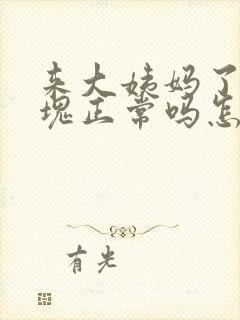 来大姨妈了
块正常吗怎
有光